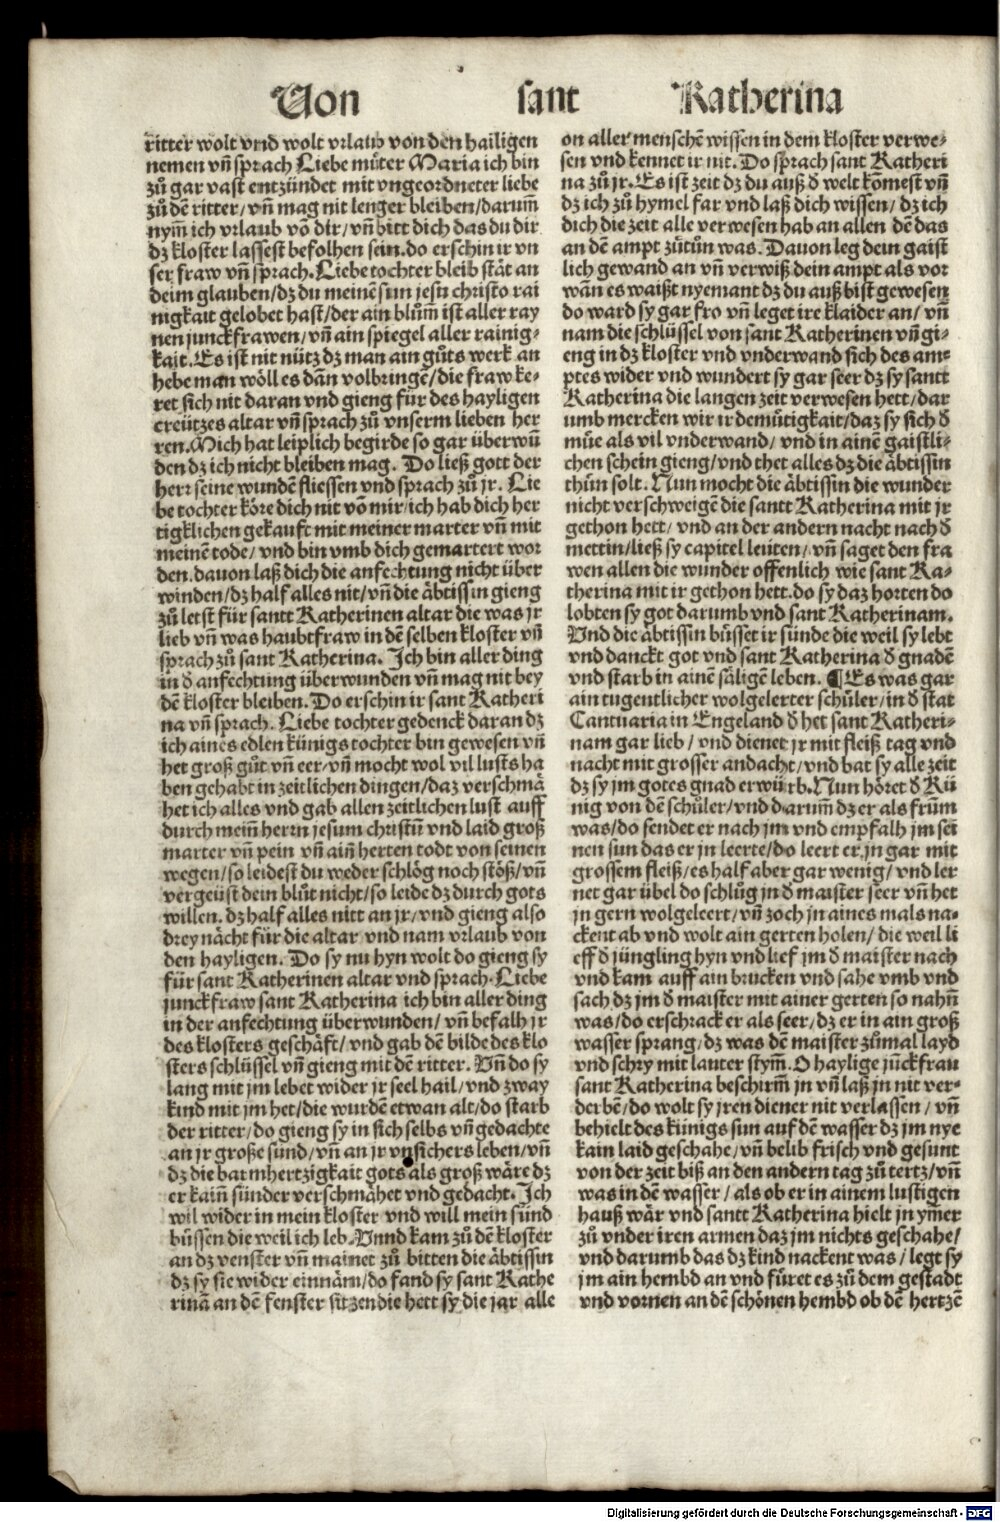 Von sant Katherina
ritter wolt vnd wolt vrlaub von den hailigen
nemen vn̄ sprach Liebe můter Maria ich bin
zů gar vast entzündet mit vngeordneter liebe
zů dē ritter/ vn̄ mag nit lenger bleiben/darum̄
nym̄ ich vrlaub vō dir/ vn̄ bitt dich das du dir
dz kloster lassest befolhen sein. do erschin ir vn
ser fraw vn̄ sprach. Liebe tochter bleib stät an
deim glauben/dz du meinē sun jesu christo rai
nigkait gelobet hast/der ain blům̄ ist aller ray
nen junckfrawen/ vn̄ ain spiegel aller rainig-
kait. Es ist nit nütz dz man ain gůts werk an
hebe man wöll es dān volbringē/die fraw ke-
ret sich nit daran vnd gieng für des hayligen
creützes altar vn̄ sprach zů vnserm lieben her
ren. Mich hat leiplich begirde so gar überwū
den dz ich nicht bleiben mag. Do ließ gott der
herr seine wundē fliessen vnd sprach zů jr. Lie
be tochter köre dich nit vō mir/ich hab dich her
tigklichen gekauft mit meiner marter vn̄ mit
meinē tode/ vnd bin vmb dich gemartert wor
den. davon laß dich die anfechtung nicht über
winden/dz half alles nit/ vn̄ die äbtissin gieng
zů letst für santt Katherinen altar die was jr
lieb vn̄ was haubtfraw in dē selben kloster vn̄
sprach zů sant Katherina. Ich bin aller ding
in d̄ anfechtung überwunden vn̄ mag nit bey
dē kloster bleiben. Do erschin ir sant Katheri
na vn̄ sprach. Liebe tochter gedenck daran dz
ich aines edlen künigs tochter bin gewesen vn̄
het groß gůt vn̄ eer/ vn̄ mocht wol vil lusts ha
ben gehabt in zeitlichen dingen/daz verschmä
het ich alles vnd gab allen zeitlichen lust auff
durch mein̄ herrn jesum christū vnd laid groß
marter vn̄ pein vn̄ ain̄ herten todt von seinen
wegen/so leidest du weder schlög noch stöß/vn̄
vergeüst dein blůt nicht/so leide dz durch gots
willen. dz half alles nitt an jr/vnd gieng also
drey nächt für die altar vnd nam vrlaub von
den hayligen. Do sy nu hyn wolt do gieng sy
für sant Katherinen altar vnd sprach. Liebe
junckfraw sant Katherina ich bin aller ding
in der anfechtung überwunden/ vn̄ befalh jr
des klosters geschäft/vnd gab dē bilde des klo
sters schlüssel vn̄ gieng mit dē ritter. Vn̄ do sy
lang mit jm lebet wider jr seel hail/vnd zway
kind mit jm het/die wurdē etwan alt/do starb
der ritter/do gieng sy in sich selbs vn̄ gedachte
an jr große sünd/vn̄ an jr vnsichers leben/vn̄
dz die barmhertzigkait gots als groß wäre dz
er kain̄ sünder verschmähet vnd gedacht. Ich
wil wider in mein kloster vnd will mein sünd
büssen die weil ich leb. Vnnd kam zů dē kloster
an dz venster vn̄ mainet zů bitten die äbtissin
dz sy sie wider einnäm/do fand sy sant Kathe
rinā an dē fenster sitzen die hett sy die jar alle
on aller menschē wissen in dem kloster verwe-
sen vnd kennet ir nit. Do sprach sant Katheri
na zů jr. Es ist zeit dz du auß d̄ welt kōmest vn̄
dz ich zů hymel far vnd laß dich wissen/ dz ich
dich die zeit alle verwesen hab an allen dē das
an dē ampt zůtůn was. Davon leg dein gaist
lich gewand an vn̄ verwiß dein ampt als vor
wān es waißt nyemant dz du auß bist gewesen
do ward sy gar fro vn̄ leget ire klaider an/ vn̄
nam die schlüssel von sant Katherinen vn̄ gi-
eng in dz kloster vnd vnderwand sich des am-
ptes wider vnd wundert sy gar seer dz sy santt
Katherina die langen zeit verwesen hett/dar
umb mercken wir ir demůtigkait/daz sy sich d̄
můe als vil vnderwand/ vnd in ainē gaistli-
chen schein gieng/vnd thet alles dz die äbtissin
thůn solt. Nun mocht die äbtissin die wunder
nicht verschweigē die santt Katherina mit jr
gethon hett/ vnd an der andern nacht nach d̄
mettin/ließ sy capitel leüten/ vn̄ saget den fra
wen allen die wunder offenlich wie sant Ka-
therina mit ir gethon hett. do sy daz horten do
lobten sy got darumb vnd sant Katherinam.
Vnd die äbtissin bůsset ir sünde die weil sy lebt
vnd danckt got vnd sant Katherina d̄ gnadē
vnd starb in ainē säligē leben. ¶ Es was gar
ain tugentlicher wolgelerter schůler/in d̄ stat
Cantuaria in Engeland d̄ het sant Katheri-
nam gar lieb/ vnd dienet jr mit fleiß tag vnd
nacht mit grosser andacht/vnd bat sy alle zeit
dz sy jm gotes gnad erwürb. Nun höret d̄ Kü
nig von dē schůler/vnd darum̄ dz er als frūm
was/do sendet er nach jm vnd empfalh jm sei
nen sun das er jn leerte/do leert er jn gar mit
grossem fleiß/es half aber gar wenig/ vnd ler
net gar übel do schlůg jn d̄ maister seer vn̄ het
jn gern wolgeleert/vn̄ zoch jn aines mals na-
ckent ab vnd wolt ain gerten holen/ die weil li
eff d̄ jüngling hyn vnd lief jm d̄ maister nach
vnd kam auff ain brucken vnd sahe vmb vnd
sach dz jm d̄ maister mit ainer gerten so nahn̄
was/do erschrack er als seer/dz er in ain groß
wasser sprang/dz was dē maister zůmal layd
vnd schry mit lauter stym̄. O haylige jūckfrau
sant Katherina beschirm̄ jn vn̄ laß jn nit ver-
derbē/do wolt sy jren diener nit verlassen/ vn̄
behielt des künigs sun auf dē wasser dz jm nye
kain laid geschahe/vn̄ belib frisch vnd gesunt
von der zeit biß an den andern tag zů tertz/vn̄
was in dē wasser/ als ob er in ainem lustigen
hauß wär vnd santt Katherina hielt jn ym̄er
zů vnder iren armen daz jm nichts geschahe/
vnd darumb das dz kind nackent was/ legt sy
jm ain hembd an vnd füret es zů dem gestadt
vnd vornen an dē schönen hembd ob dē hertzē
Digitalisierung gefördert durch die Deutsche Forschungsgemeinschaft - DFG